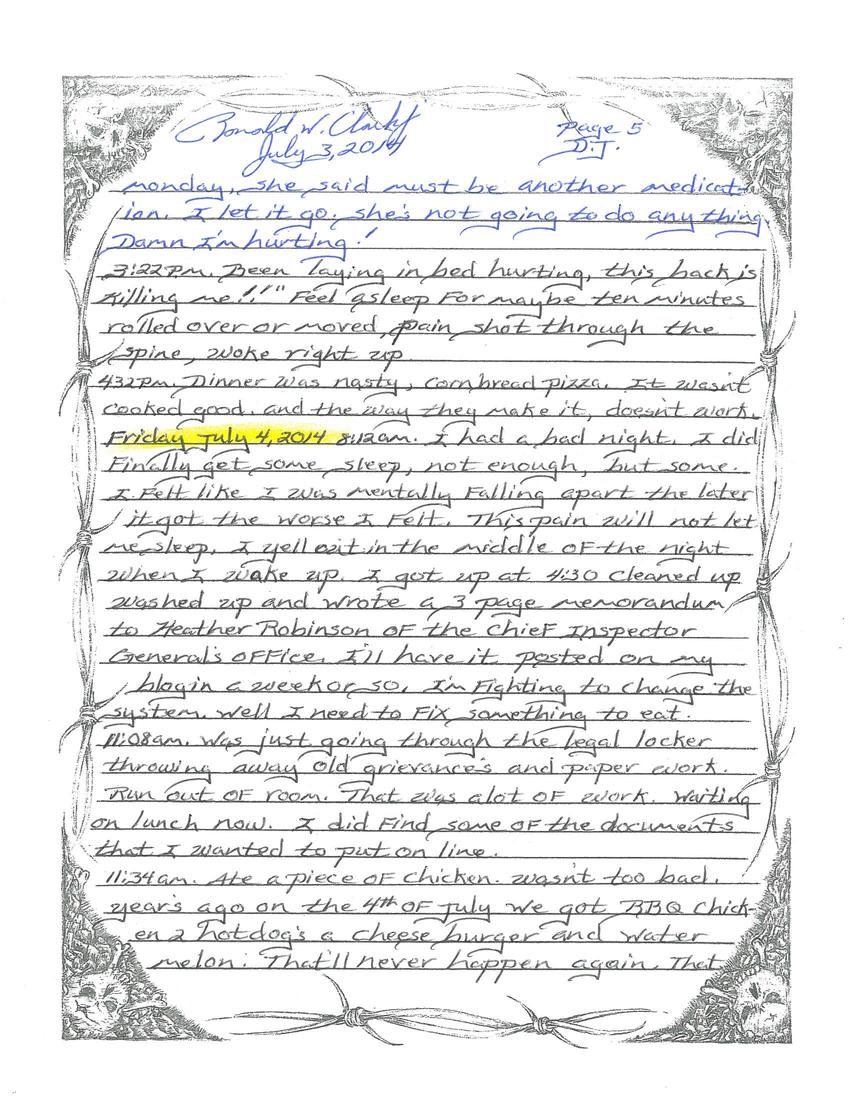 Ronald W. Clark Jr
Page 5
July 3, 2014
D.J.
monday, she said must be another medicat-
ion. I let it go. she's not going to do any thing
Damn I'm hurting!
3:22 pm. Been laying in bed hurting, this back is
killing me!!!" Feel asleep For maybe ten minutes
rolled over or moved, pain shot through the
spine, woke right up.
432 pm. Dinner was nasty, corn bread pizza. It wasn't
cooked good. and the way they make it, doesn't work.
Friday July 4, 2014 8:12 am. I had a bad night. I did
Finally get some sleep, not enough, but some.
I Felt like I was mentally Falling apart the later
it got the worse I Felt. This pain will not let
me sleep. I yell out in the middle OF the night
when I wake up. I got up at 4:30 cleaned up
washed up and wrote a 3 page memorandum
to Heather Robinson OF the chieF Inspector
General's oFFice. I'll have it posted on my
blog in a week or so. I'm Fighting to change the
system. well I need to Fix something to eat.
11:08 am. Was just going through the legal locker
throwing away old grievance's and paper work.
Run out OF room. That was alot OF work. Waiting
on lunch now. I did Find some OF the documents
that I wanted to put on line.
11:34 am. Ate a piece OF chicken. wasn't too bad.
year's ago on the 4th OF July we got BBQ Chick-
en 2 hotdog's a cheese burger and water
melon. That'll never happen again. That